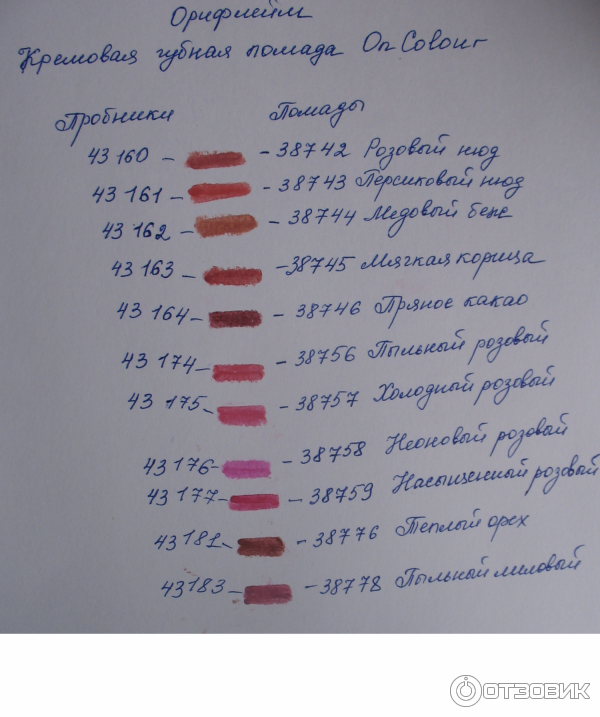 Орифлейм
Кремовая губная помада On Colour
Пробники Помады
43160 - - 38742 Розовый нюд
43 161 - - 38743 Персиковый нюд
43 162 - - 38744 Медовый беж
43163 - - 38745 Мягкая корица
43 164 - - 38746 Пряное какао
43 174 - - 38756 Пыльный розовый
43 175 - - 38757 Холодный розовый
43176 - - 38758 Неоновый розовый
43177 - - 38759 Насыщенный розовый
43181 - - 38776 Теплый орех
43183 - - 38778 Пыльный лиловый
ОТЗОВИК